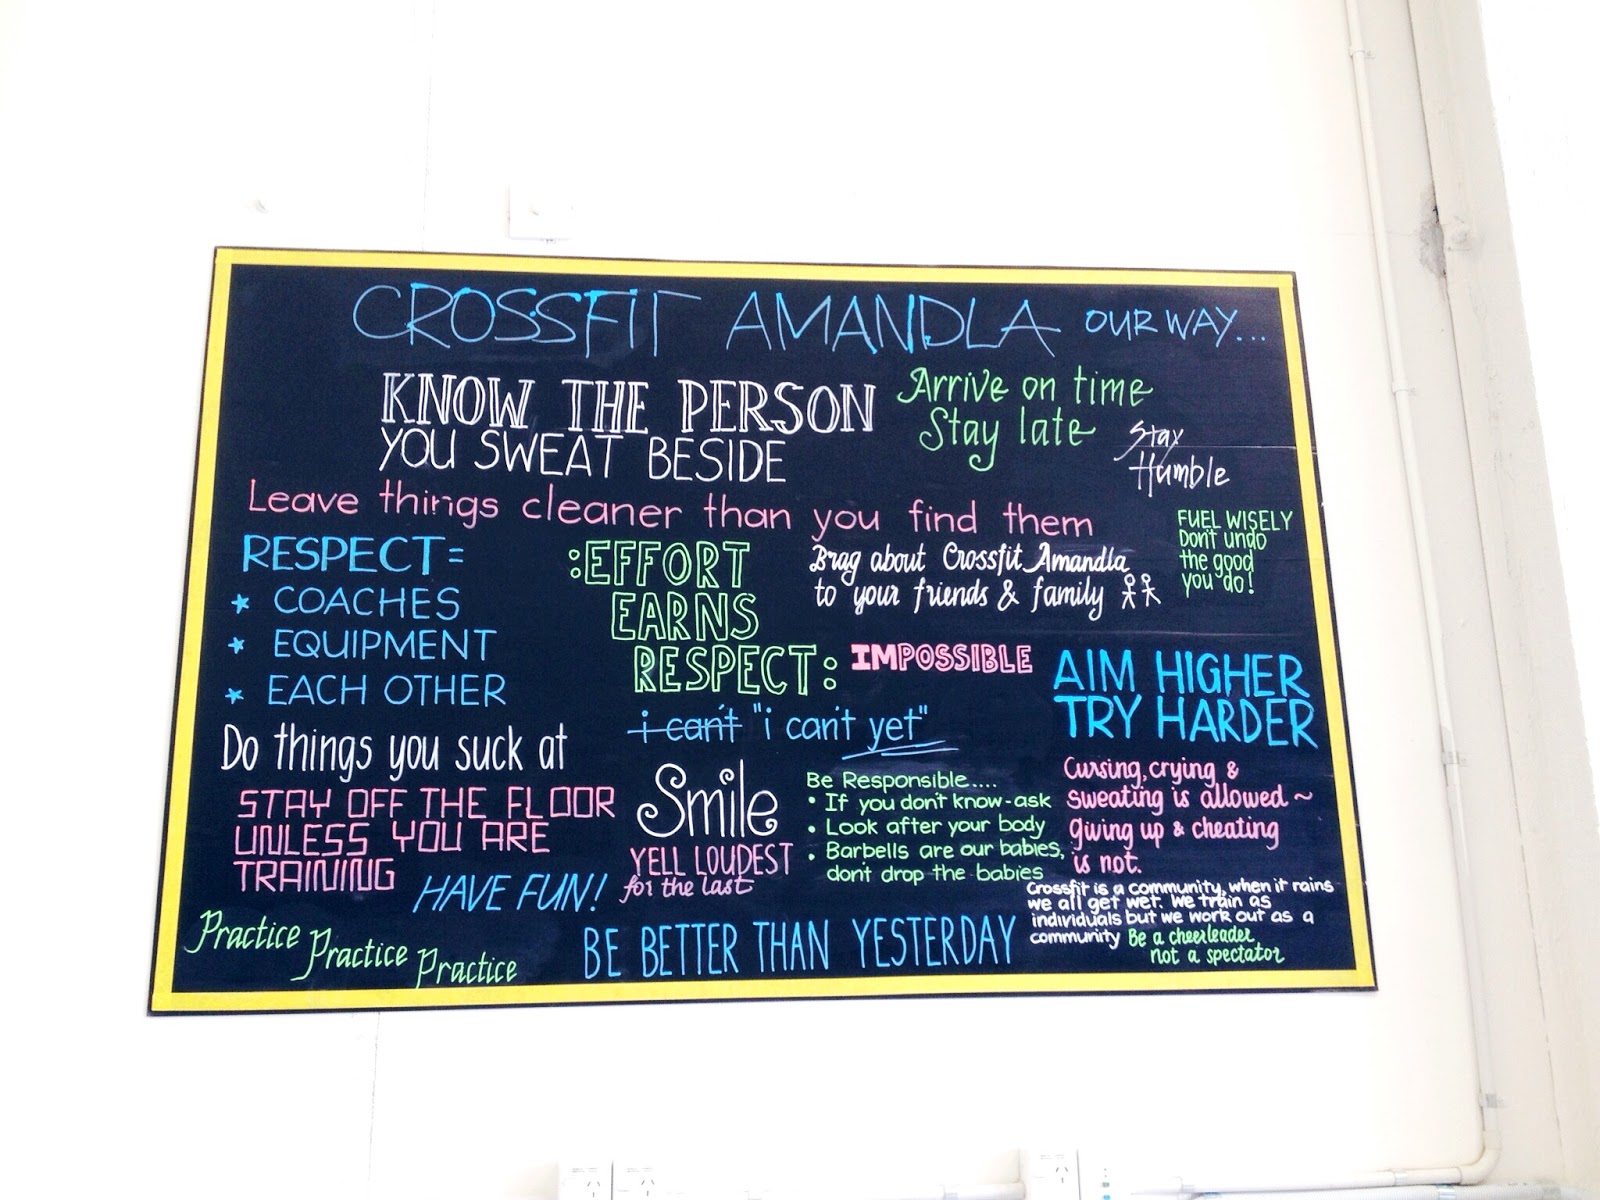 CROSSFIT AMANDLA OUR WAY...
KNOW THE PERSON
YOU SWEAT BESIDE
Arrive on time
Stay late
Stay
Humble
Leave things cleaner than you find them
FUEL WISELY
Don't undo
the good
you do!
RESPECT=
* COACHES
* EQUIPMENT
* EACH OTHER
:EFFORT
EARNS
RESPECT:
Brag about Crossfit Amandla
to your friends & family
IMPOSSIBLE
AIM HIGHER
TRY HARDER
i can't "i can't yet"
Do things you suck at
STAY OFF THE FLOOR
UNLESS YOU ARE
TRAINING
Smile
YELL LOUDEST
for the last
Be Responsible....
• If you don't know-ask
• Look after your body
• Barbells are our babies,
don't drop the babies
Cursing, crying &
sweating is allowed ~
giving up & cheating
is not.
HAVE FUN!
Crossfit is a community, when it rains
we all get wet. We train as
individuals but we work out as a
community Be a cheerleader
not a spectator
Practice Practice Practice
BE BETTER THAN YESTERDAY